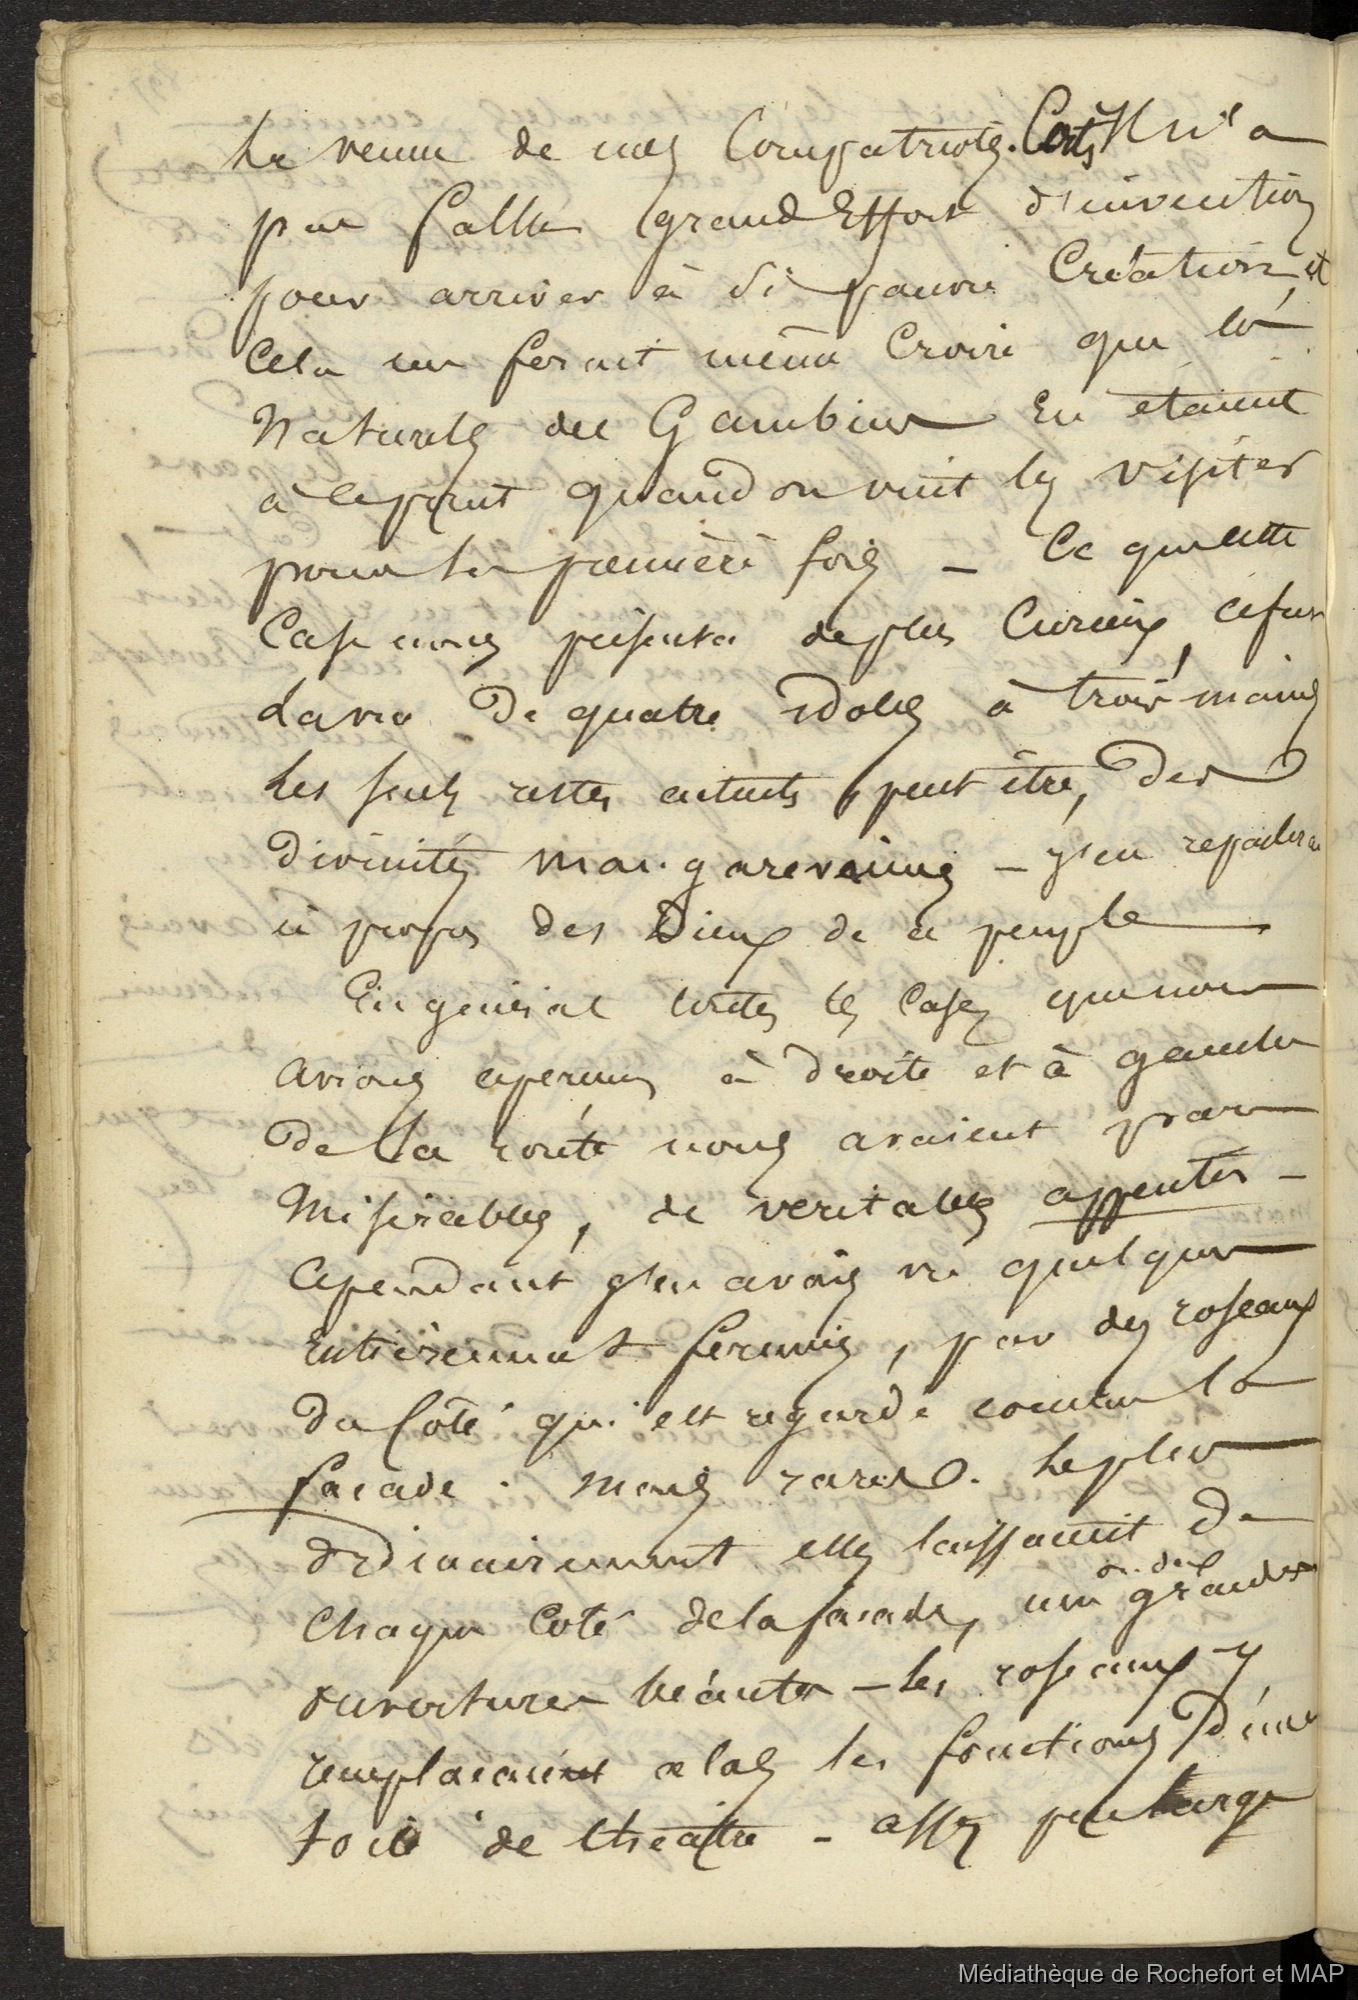 la venue de mes Compatriotes. Certes Il n'a
pas fallu grand Effort d'invention
pour arriver à si pauvre Création, et
cela me ferait même croire que les
Naturels des Gambier En étaient
à ce point quand on vint les visiter
pour la première fois _ Ce que cette
Case nous présenta de plus Curieux, ce fut
la vue de quatre idoles à trois mains
les seuls restes entiers peut être, des
divinités mangareviennes _ j'en reparlerai
à propos des Dieux de ce peuple
En général toutes les cases que nous
avions aperçues à droite et à gauche
de la route nous avaient paru
Misérables, de veritables appentis _
Cependant j'en avais vu quelques
Entièrement fermées, par des roseaux
du Coté qui est regardé comme la
façade. Mais rares. le plus
ordinairement elles laissaient de
chaque Coté de la façade, une ou deux grandes
ouvertures béantes _ les roseaux y
remplaçaient alors les fonctions d'une
toile de théatre _ assez peu large